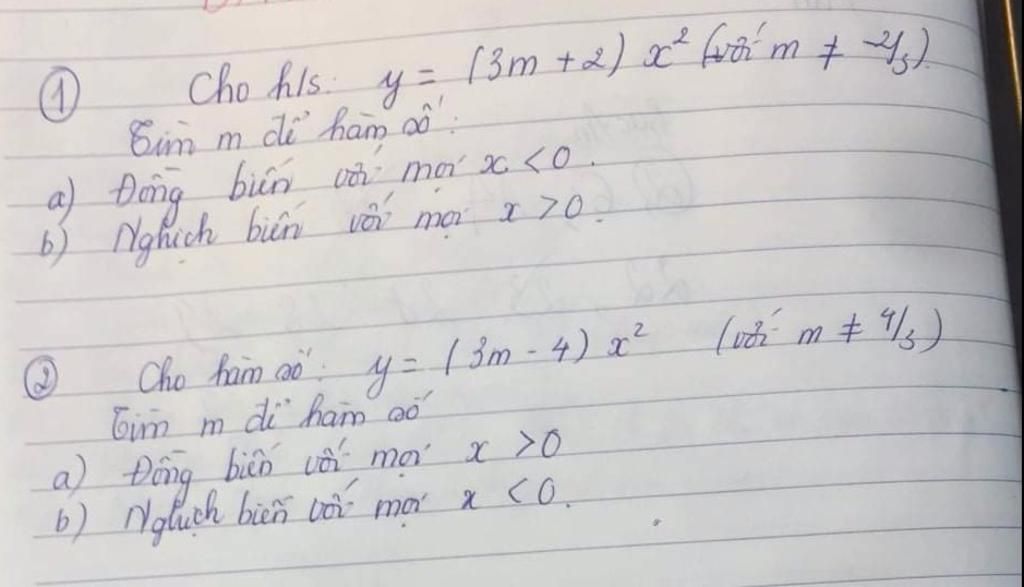 ① Cho h/s: y = (3m + 2) x² (với m ≠ -2/3).
Tìm m để hàm số:
a) Đồng biến với mọi x < 0.
b) Nghịch biến với mọi x > 0.
② Cho hàm số: y = (3m - 4) x² (với m ≠ 4/3)
Tìm m để hàm số
a) Đồng biến với mọi x > 0
b) Nghịch biến với mọi x < 0.